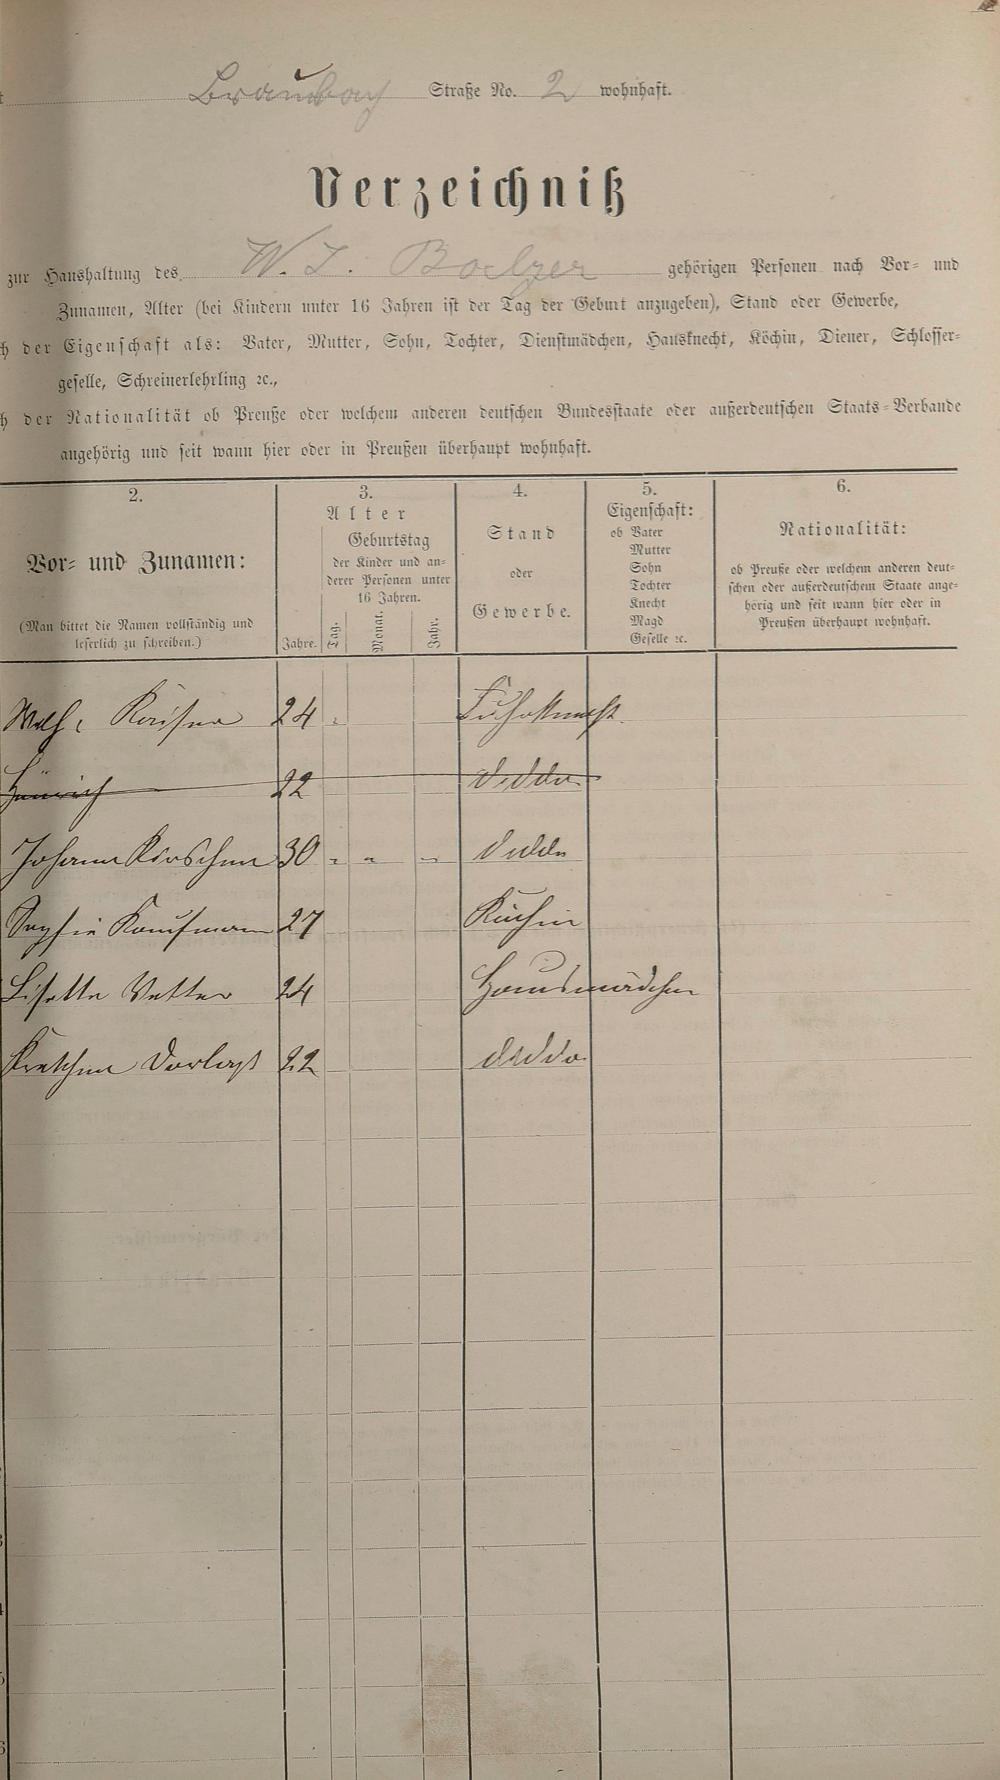 Straße No. 2 wohnhaft.
Verzeichniß
zur Haushaltung des W. J. Boelzer gehörigen Personen nach Vor- und
Zunamen, Alter (bei Kindern unter 16 Jahren ist der Tag der Geburt anzugeben), Stand oder Gewerbe,
der Eigenschaft als: Vater, Mutter, Sohn, Tochter, Dienstmädchen, Hausknecht, Köchin, Diener, Schlosser-
geselle, Schreinerlehrling ꝛc.,
der Nationalität ob Preuße oder welchem anderen deutschen Bundesstaate oder außerdeutschen Staats-Verbande
angehörig und seit wann hier oder in Preußen überhaupt wohnhaft.
2.
Vor- und Zunamen:
(Man bittet die Namen vollständig und
leserlich zu schreiben.)
3.
Alter
Geburtstag
der Kinder und an-
derer Personen unter
16 Jahren.
Jahre.
Tag.
Monat.
Jahr.
4.
Stand
oder
Gewerbe.
5.
Eigenschaft:
ob Vater
Mutter
Sohn
Tochter
Knecht
Magd
Geselle ꝛc.
6.
Nationalität:
ob Preuße oder welchem anderen deut-
schen oder außerdeutschem Staate ange-
hörig und seit wann hier oder in
Preußen überhaupt wohnhaft.
Wilh. Kaiser 24 Fuhrknecht
Heinrich 22 ditto
Johann Kirschner 30 ditto
Sophie Kaufmann 27 Küchin
Lisette Vetter 24 Hausmädchen
22 ditto